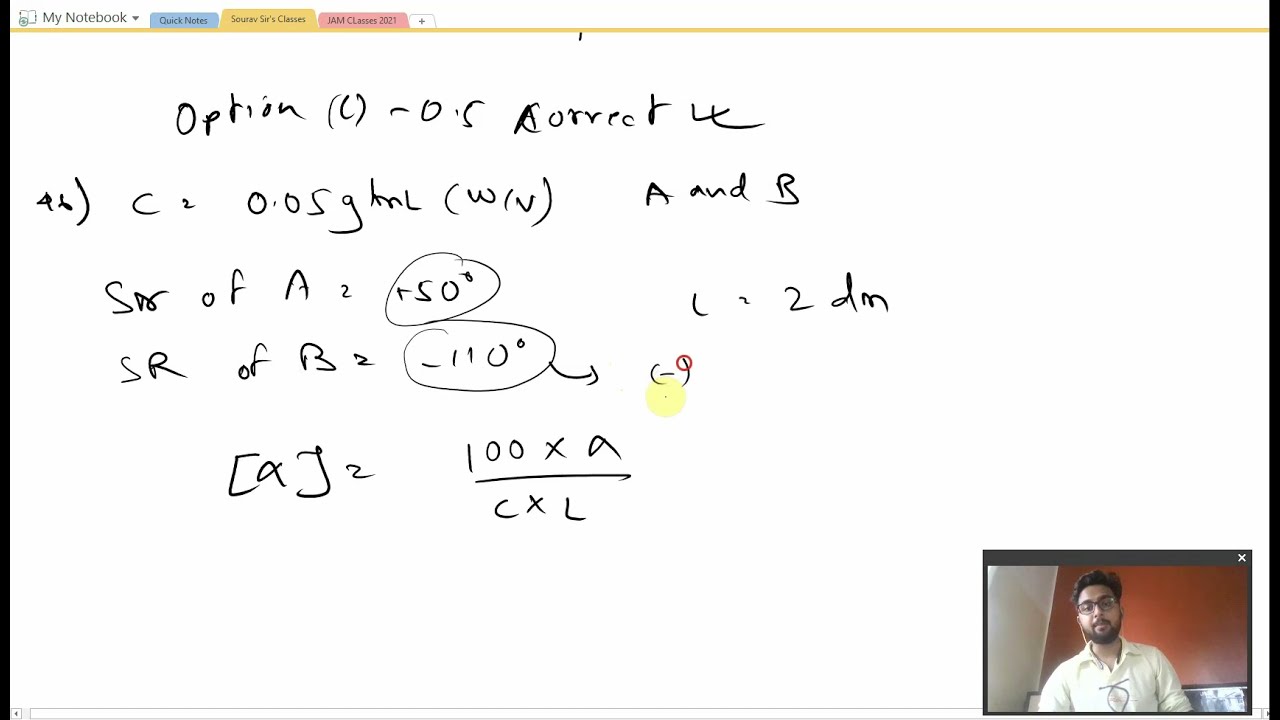 My Notebook Quick Notes Sourav Sir's Classes JAM CLasses 2021
Option (C) - 0.5 Correct
46) C = 0.05 g/mL (W/V) A and B
SR of A = +50° L = 2 dm
SR of B = -110° → (-)
[α] = 100 x α
C x L